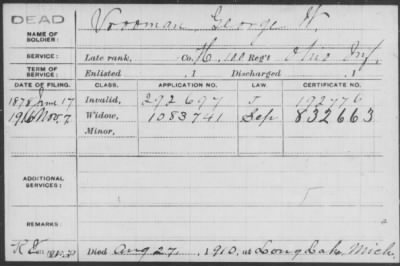 DEAD
NAME OF SOLDIER: Vrooman, George W.
SERVICE: Late rank, Co. K, 100 Reg't Ohio Inf.
TERM OF SERVICE: Enlisted , 1 Discharged , 1
DATE OF FILING. CLASS. APPLICATION NO. LAW. CERTIFICATE NO.
1878 June 17 Invalid, 292697 192776
1916 Nov. 7. Widow, 1083741 Sep 832663
Minor,
ADDITIONAL SERVICES:
REMARKS:
Died Aug 27, 1910, at Long Lake, Mich.